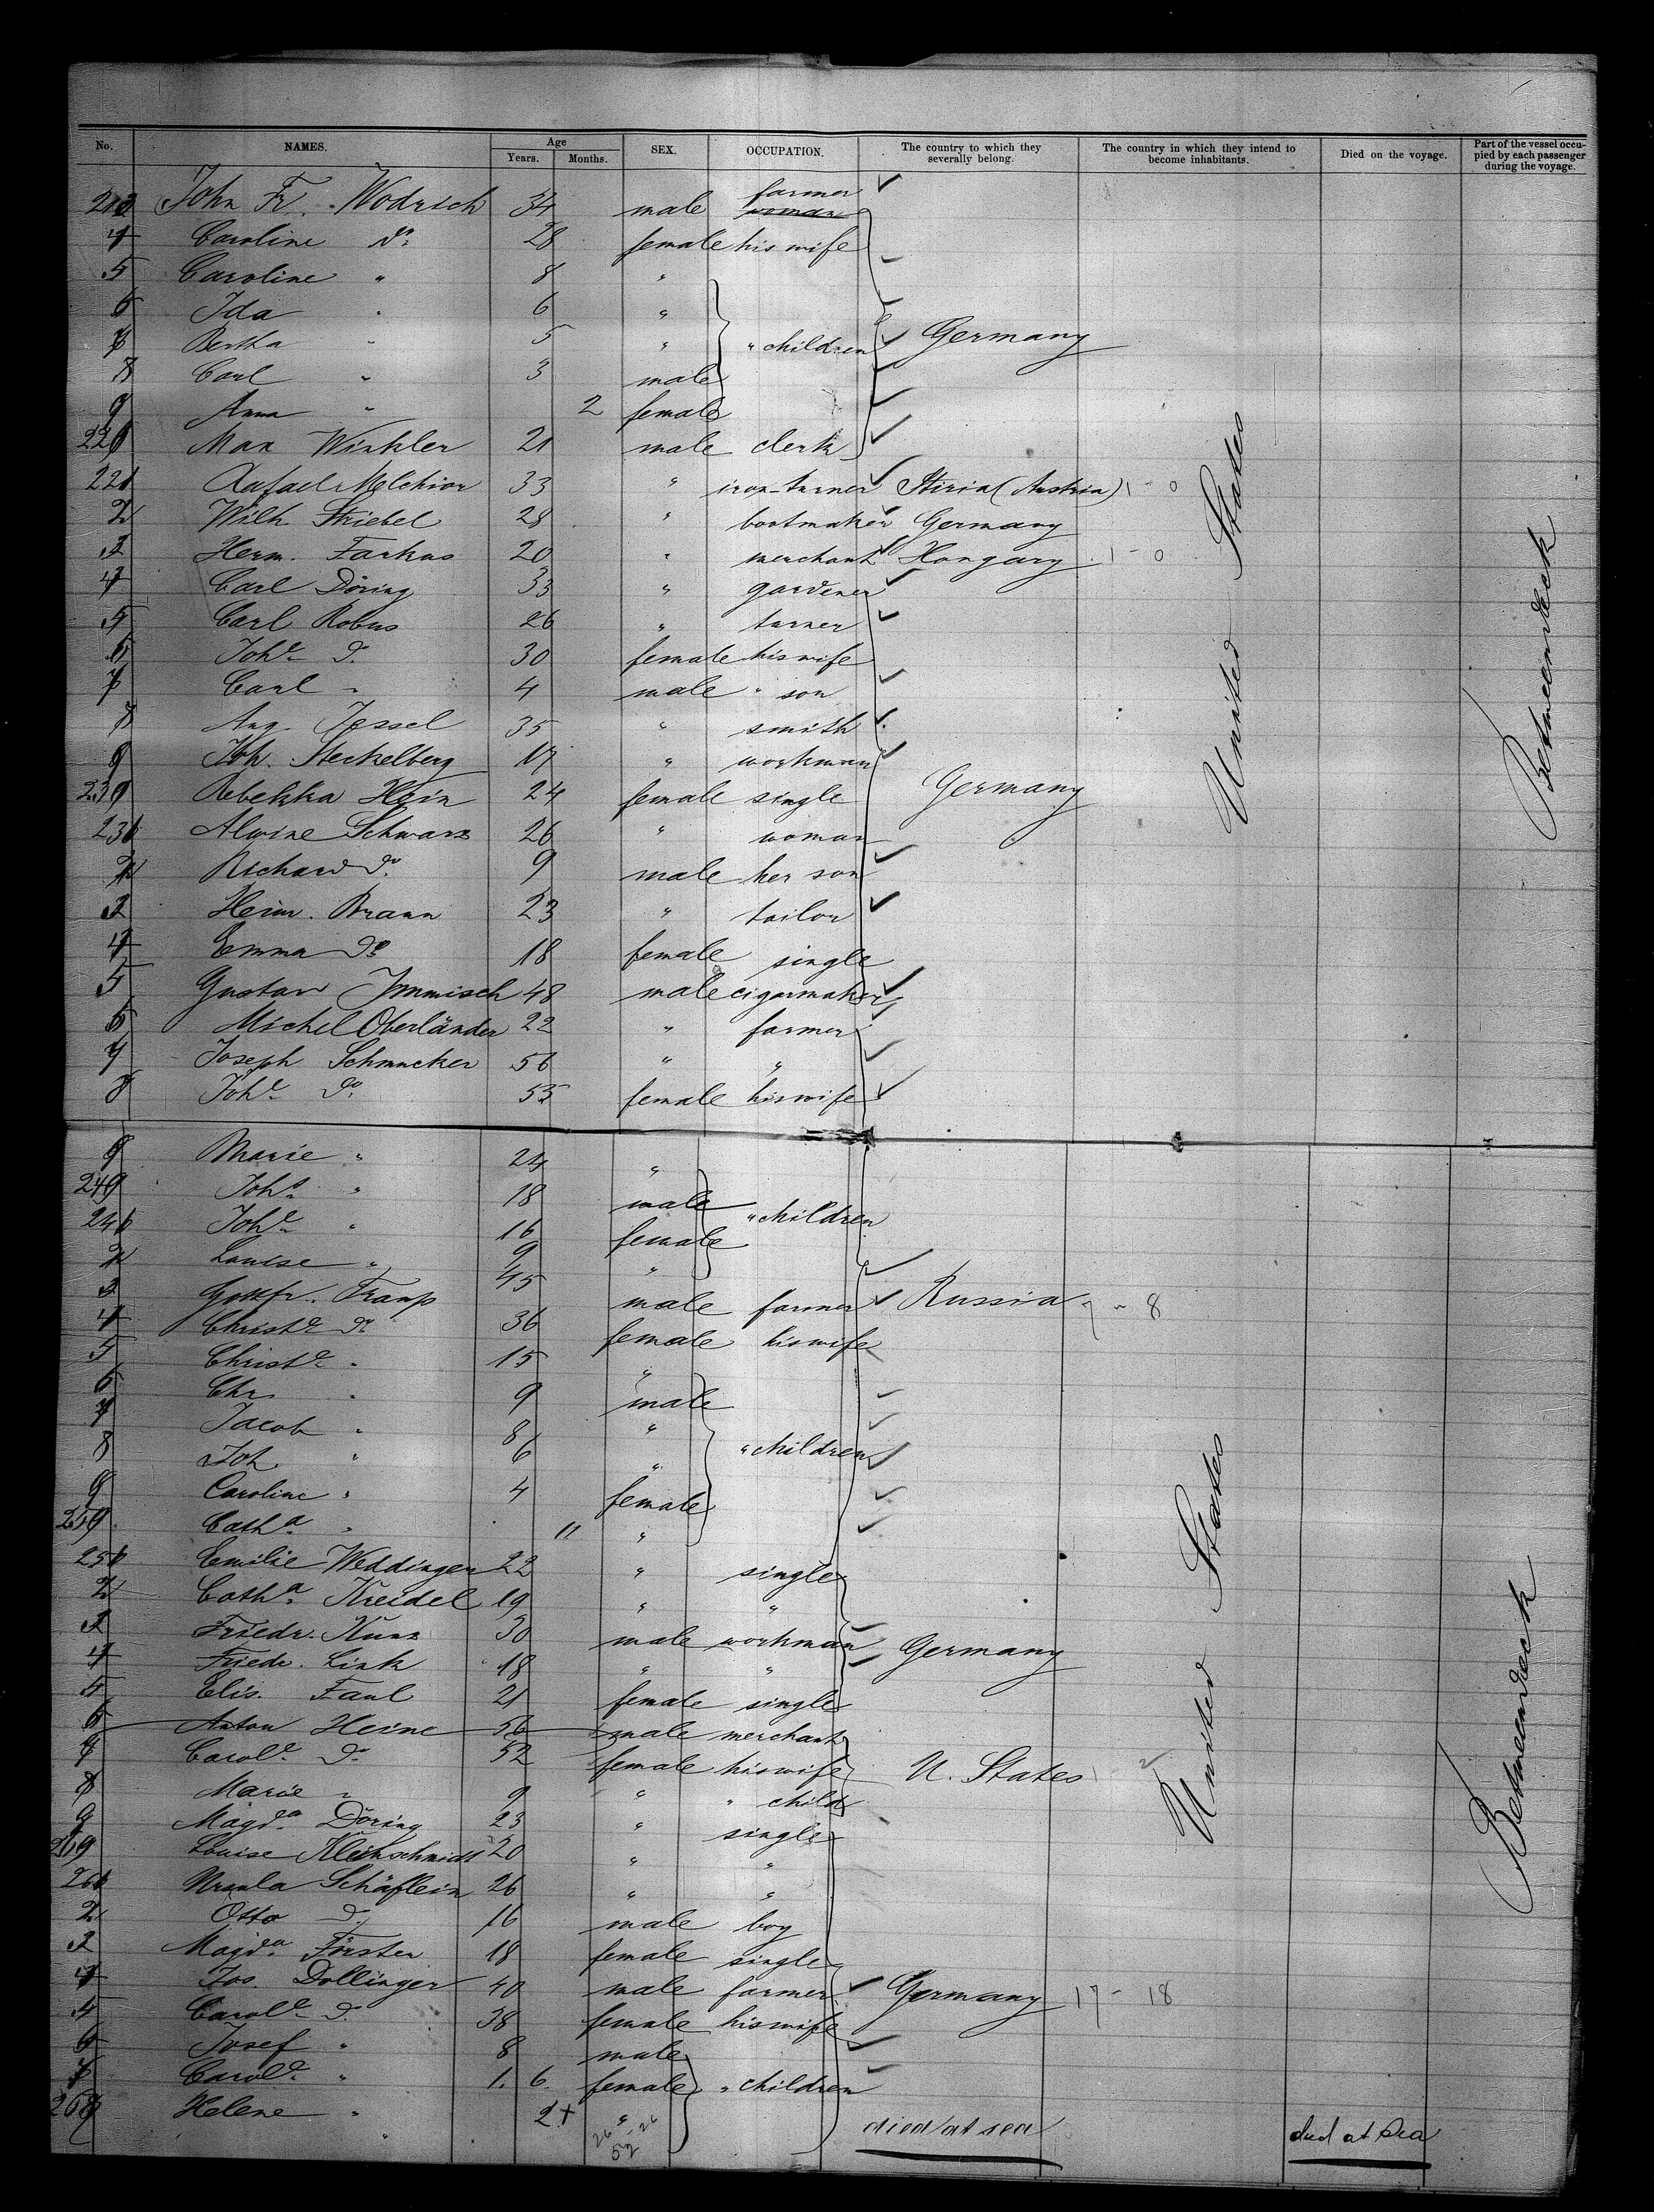 No. NAMES. Age Years. Months. SEX. OCCUPATION. The country to which they severally belong. The country in which they intend to become inhabitants. Died on the voyage. Part of the vessel occupied by each passenger during the voyage.
213 John Fr. Wodrich 34 male farmer woman
4 Caroline do 28 female his wife
5 Caroline " 8 "
6 Ida " 6 "
7 Bertha " 5 " " children Germany
8 Carl " 3 male
9 Anna " 2 female
220 Max Winkler 21 male clerk
221 Rafael Melchior 33 " iron-turner Stiria (Austria) 1 - 0
2 Wilh Striebel 28 " bootmaker Germany
3 Herm. Farkas 20 " merchant Hongary 1 - 0
4 Carl Döring 33 " gardener
5 Carl Robus 26 " turner
6 Johe do 30 female his wife
7 Carl " 4 male " son
8 Aug. Jessel 35 " smith
9 Joh. Steckelberg 17 " workman
230 Rebekka Hein 24 female single Germany
231 Alwine Schwarz 26 " woman
2 Richard do 9 male her son
3 Heinr. Braun 23 " tailor
4 Emma do 18 female single
5 Gustav Immisch 48 male cigarmaker
6 Michel Oberländer 22 " farmer
7 Joseph Schmucker 56 " "
8 Johe do 55 female his wife
9 Marie " 24 "
240 Johs " 18 male " children
241 Johe " 16 female
2 Louise " 9 "
3 Gottfr. Tramp 45 male farmer Russia 7 - 8
4 Christe do 36 female his wife
5 Christe " 15 "
6 Chr. " 9 male
7 Jacob " 8 "
8 Joh. " 6 " " children
9 Caroline " 4 female
250 Catha " 11 "
251 Emilie Weddingen 22 " single
2 Catha Kreidel 19 " "
3 Friedr. Kunz 30 male workman Germany
4 Friedr. Link 18 " "
5 Elis. Faul 21 female single
6 Anton Heine 56 male merchant
7 Carole do 52 female his wife U. States
8 Marie " 9 " " child
9 Magda Döring 23 " single
260 Louise Kleinschmidt 20 " "
261 Ursula Schäflein 26 " "
2 Otto do 16 male boy
3 Magda Förster 18 female single
4 Jos. Dollinger 40 male farmer Germany 17 - 18
5 Carole do 38 female his wife
6 Josef " 8 male
7 Carole " 1. 6. female " children
268 Helene " 2+ " died at sea died at sea
26 - 26
52
United States
Betweendeck
United States
Betweendeck